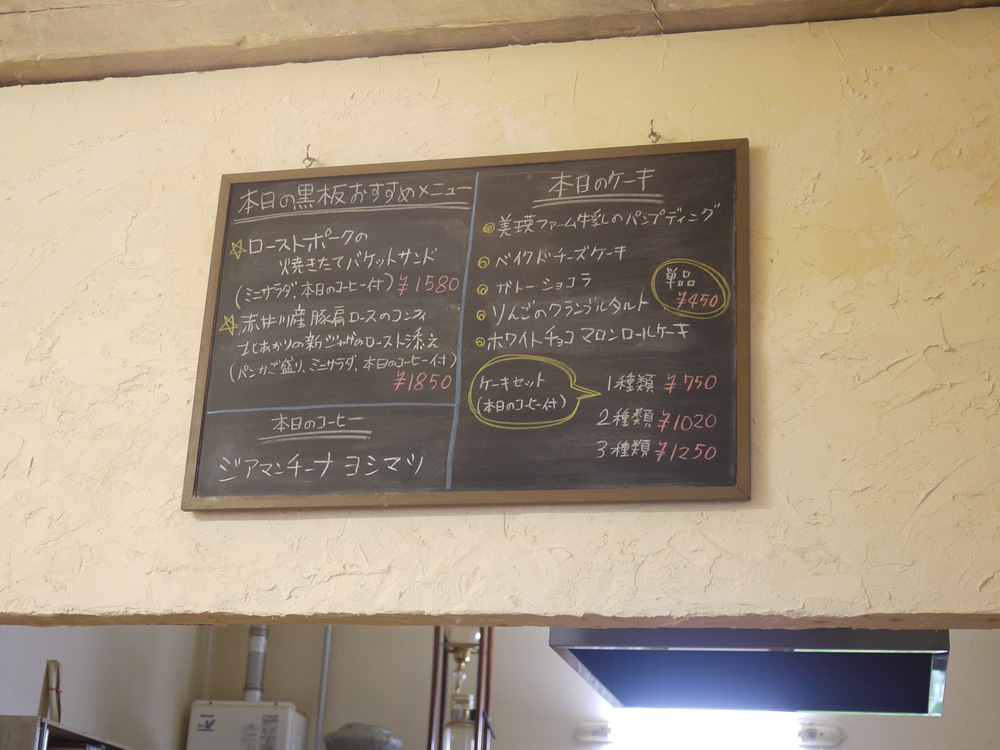 本日の黒板おすすめメニュー
ローストポークの
焼きたてバケットサンド
(ミニサラダ、本日のコーヒー付) ¥1580
赤井川産豚肩ロースのコンフィ
北あかりの新ジャガのロースト添え
(パンかご盛り、ミニサラダ、本日のコーヒー付)
¥1850
本日のコーヒー
ジアマンチーナ ヨシマツ
本日のケーキ
美瑛ファーム牛乳のパンプディング
ベイクドチーズケーキ
ガトーショコラ
りんごのクランブルタルト
ホワイトチョコマロンロールケーキ
単品
¥450
ケーキセット
(本日のコーヒー付)
1種類 ¥750
2種類 ¥1020
3種類 ¥1250